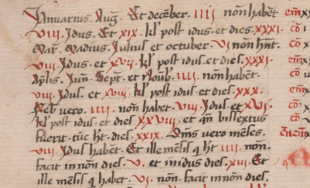 Januarius. Aug. Et decēber. IIII noñ habēt
VIII. Idus. Et XIX. kl's post idus et dies. XXXI.
Mar. Madius. Julius et octuber. VI noñ hñt.
VIII. Idus. et XVII. kl's post idus. et dies. XXXI.
Aplis. Jun. Sept. et Nouēb. IIII. noñ habēt.
VIII. Idus. et XVIII. kl's post idus. et dies. XXX.
Feb' vero. IIII. noñ habet. VIII. Idus et XVI.
kl's post idus. et dies. XXVIII. et qñ bissextus
fuerit. tūc ht. dies. XXIX. Om̄s vero mēses.
VIII. idus habēt. Et ille mēsis q ht IIII. noñ.
facit in noñ dies. V. et in idus dies. XIII. Et
ille mēsis q habet. VI. noñ. facit in noñ dies.